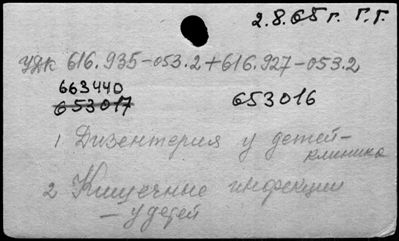 2.8.65 г. Г.Г.
удк 616.935-053.2+616.927-053.2
663440
653017 653016
1 Дизентерия у детей-
клиника
2 Кишечные инфекции
- у детей